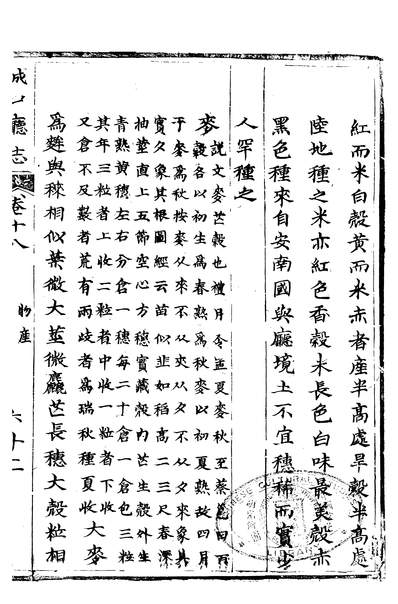 紅而米白殼黃而米赤者產半高處旱穀半高處
陸地種之米亦紅色香穀米長色白味最美殼亦
黑色種來自安南國與廳境土不宜穗稀而實少
人罕種之
麥說文麥芒穀也禮月令孟夏麥秋至蔡邕曰百
穀各以初生為春熟為秋麥以初夏熟故四月
于麥為秋按麥从來不从夾从夂不从夕來象其
實夂象其根圖經云苗似韭如稻高二三尺春深
抽莖直上五節空心方穗實藏殼內芒生殼外生
青熟黃穗左右分倉一穗每二十倉一倉包三粒
其年三粒者上收二粒者中收一粒者下收
又倉不反數者荒有兩歧者為瑞秋種夏收大麥
為麰與相似葉微大莖微麤芒長穗大殼粒相
廳志 卷十八 物產 六十二